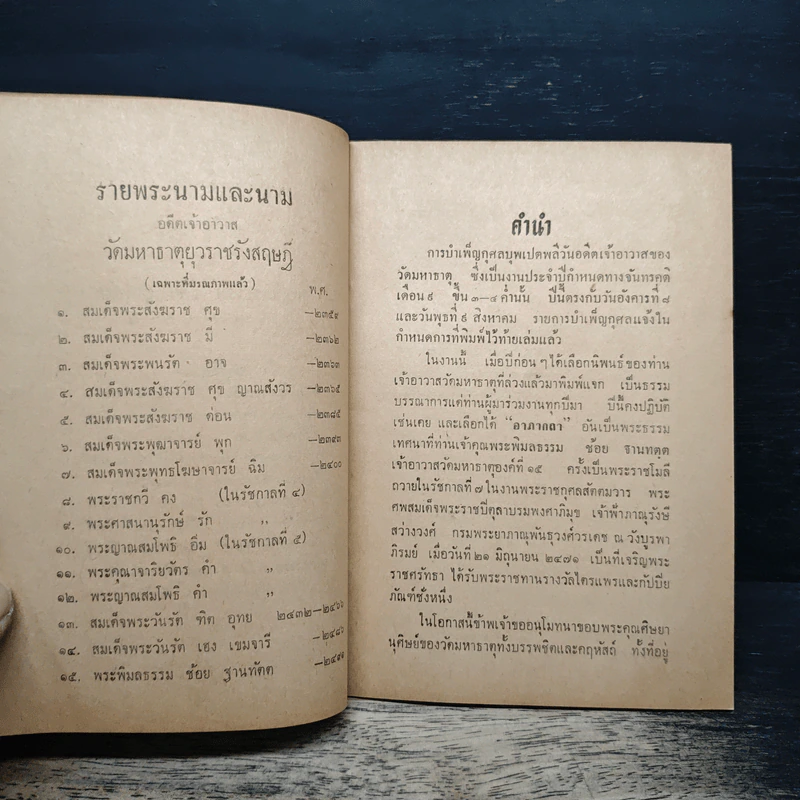 รายพระนามและนาม
อดีตเจ้าอาวาส
วัดมหาธาตุยุวราชรังสฤษฎิ์
(เฉพาะที่มรณภาพแล้ว)
พ.ศ.
๑. สมเด็จพระสังฆราช ศุข —๒๓๕๙
๒. สมเด็จพระสังฆราช มี —๒๓๖๒
๓. สมเด็จพระพนรัต อาจ —๒๓๖๓
๔. สมเด็จพระสังฆราช ศุข ญาณสังวร —๒๓๖๕
๕. สมเด็จพระสังฆราช ด่อน —๒๓๘๕
๖. สมเด็จพระพุฒาจารย์ พุก —๒๓๙๓
๗. สมเด็จพระพุทธโฆษาจารย์ ฉิม —๒๔๐๐
๘. พระราชกวี คง (ในรัชกาลที่ ๔)
๙. พระศาสนานุรักษ์ รัก ,,
๑๐. พระญาณสมโพธิ อิ่ม (ในรัชกาลที่ ๕)
๑๑. พระคุณาจาริยวัตร คำ ,,
๑๒. พระญาณสมโพธิ คำ ,,
๑๓. สมเด็จพระวันรัต ฑิต อุทย ๒๔๓๒—๒๔๖๖
๑๔. สมเด็จพระวันรัต เฮง เขมจารี —๒๔๘๖
๑๕. พระพิมลธรรม ช้อย ฐานทัตต
คำนำ
การบำเพ็ญกุศลบุพเปตพลีวันอดีตเจ้าอาวาสของ
วัดมหาธาตุ ซึ่งเป็นงานประจำปีกำหนดทางจันทรคติ
เดือน ๙ ขึ้น ๓—๔ ค่ำนั้น ปีนี้ตรงกับวันอังคารที่ ๘
และวันพุธที่ ๙ สิงหาคม รายการบำเพ็ญกุศลแจ้งใน
กำหนดการที่พิมพ์ไว้ท้ายเล่มแล้ว
ในงานนี้ เมื่อปีก่อน ๆ ได้เลือกนิพนธ์ของท่าน
เจ้าอาวาสวัดมหาธาตุที่ล่วงแล้วมาพิมพ์แจก เป็นธรรม
บรรณาการแด่ท่านผู้มาร่วมงานทุกปีมา ปีนี้คงปฏิบัติ
เช่นเคย และเลือกได้ “อาภากถา” อันเป็นพระธรรม
เทศนาที่ท่านเจ้าคุณพระพิมลธรรม ช้อย ฐานทตฺต
เจ้าอาวาสวัดมหาธาตุองค์ที่ ๑๕ ครั้งเป็นพระราชโมลี
ถวายในรัชกาลที่ ๗ ในงานพระราชกุศลสัตตมวาร พระ
ศพสมเด็จพระราชปิตุลาบรมพงศาภิมุข เจ้าฟ้าภาณุรังษี
สว่างวงศ์ กรมพระยาภาณุพันธุวงศ์วรเดช ณ วังบูรพา
ภิรมย์ เมื่อวันที่ ๒๑ มิถุนายน ๒๔๗๑ เป็นที่เจริญพระ
ราชศรัทธา ได้รับพระราชทานรางวัลไตรแพรและกัปปิย
ภัณฑ์ชั่งหนึ่ง
ในโอกาสนี้ข้าพเจ้าขออนุโมทนาขอบพระคุณศิษยา
นุศิษย์ของวัดมหาธาตุทั้งบรรพชิตและคฤหัสถ์ ทั้งที่อยู่